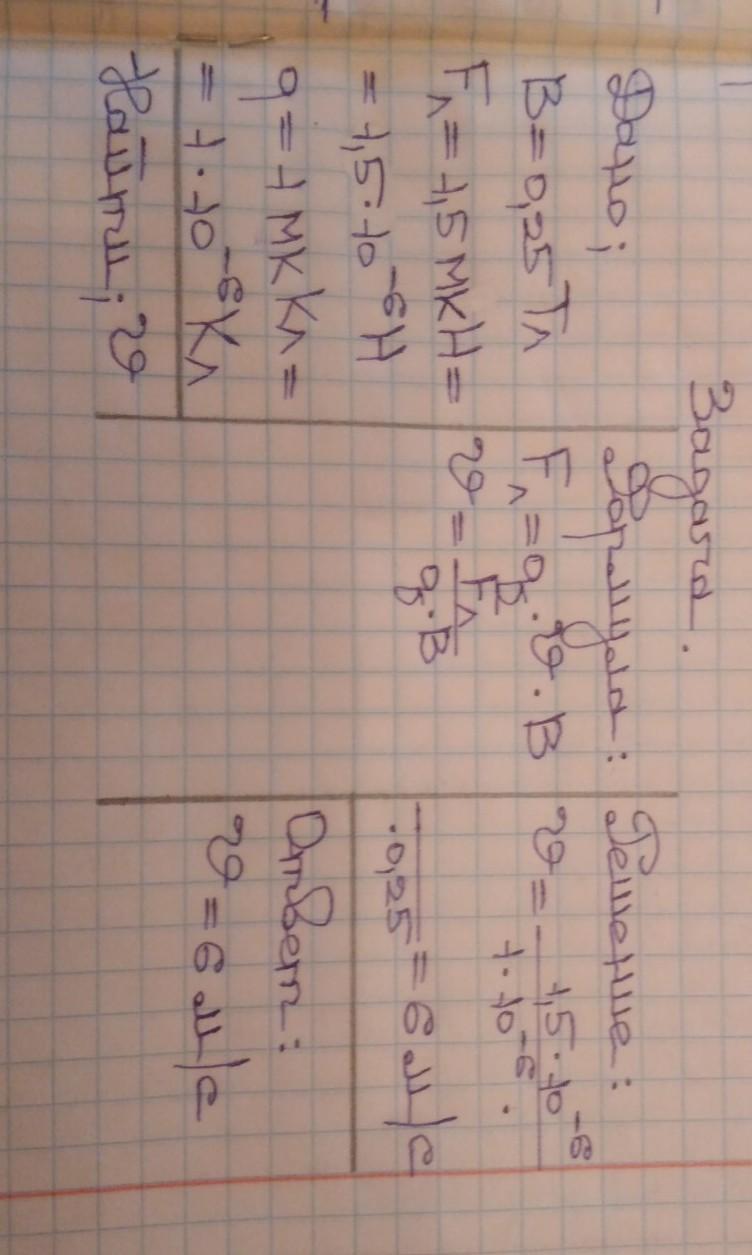 Задача.
Дано;
B = 0,25 Тл
Fл = 1,5 мкН =
= 1,5·10⁻⁶ Н
q = 1 мк Кл =
= 1·10⁻⁶ Кл
Найти; υ
Формула:
Fл = q · υ · B
υ = Fл / q·B
Решение:
υ = 1,5·10⁻⁶ / 1·10⁻⁶ ·
·0,25 = 6 м/с
Ответ:
υ = 6 м/с